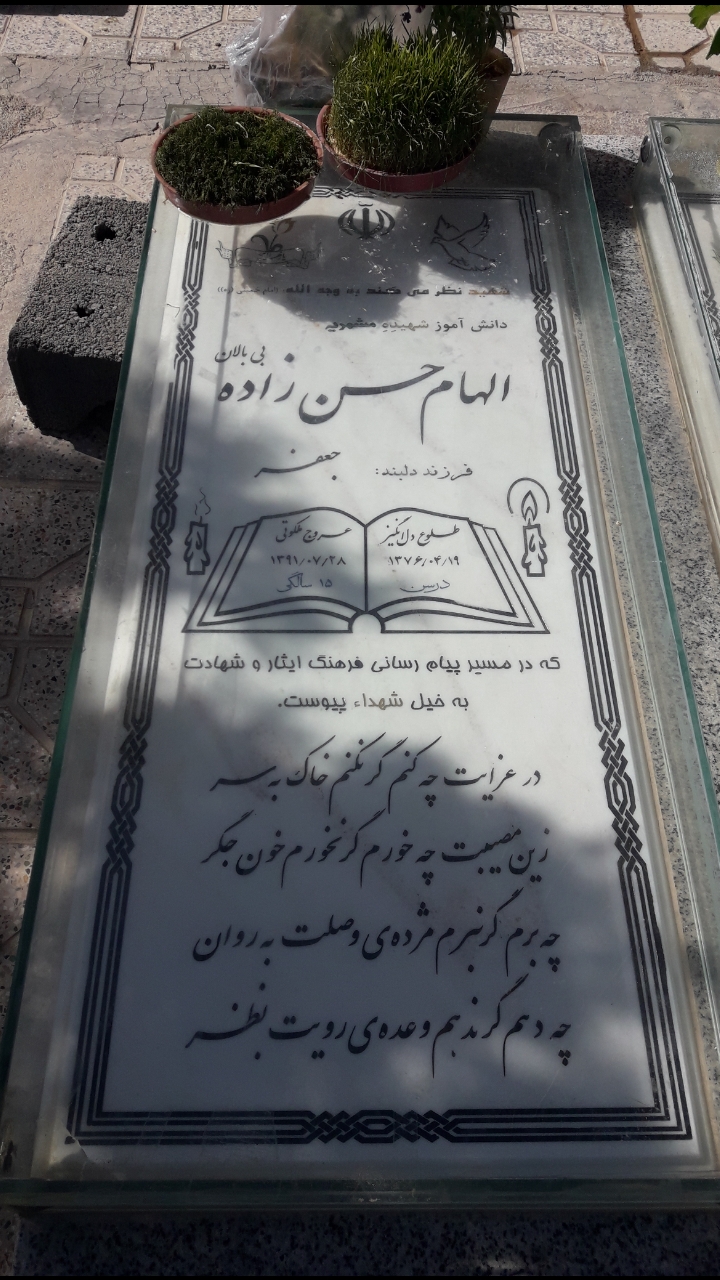 شهید نظر می کند به وجه الله. (امام خمینی (ره))
دانش آموز شهیده
الهام حسن زاده
بی بالان
فرزند دلبند: جعفر
طلوع دل انگیز
۱۳۷۶/۰۴/۱۹
درسن
عروج ملکوتی
۱۳۹۱/۰۷/۲۸
۱۵ سالگی
که در مسیر پیام رسانی فرهنگ ایثار و شهادت
به خیل شهداء پیوست.
در عزایت چه کنم گر نکنم خاک به سر
زین مصیبت چه خورم گر نخورم خون جگر
چه برم گر نبرم مژده ی وصلت به روان
چه دهم گر ندهم وعده ی رویت بنظر